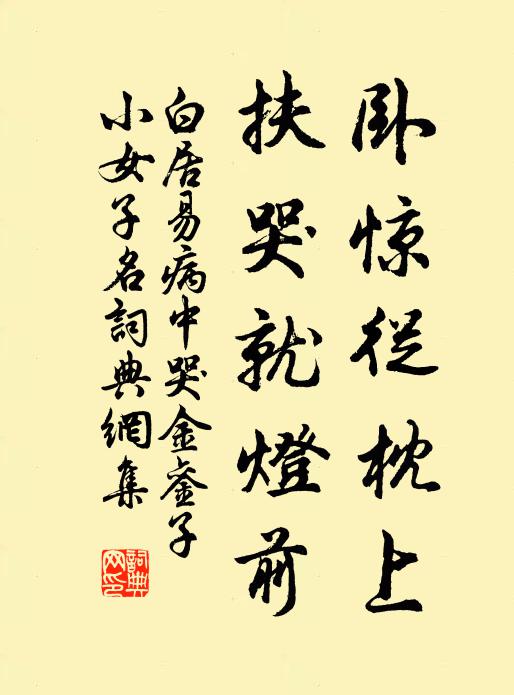 卧惊從枕上
扶哭就燈前
白居易病中哭金銮子
小女子名詞典網集
詞典
网印